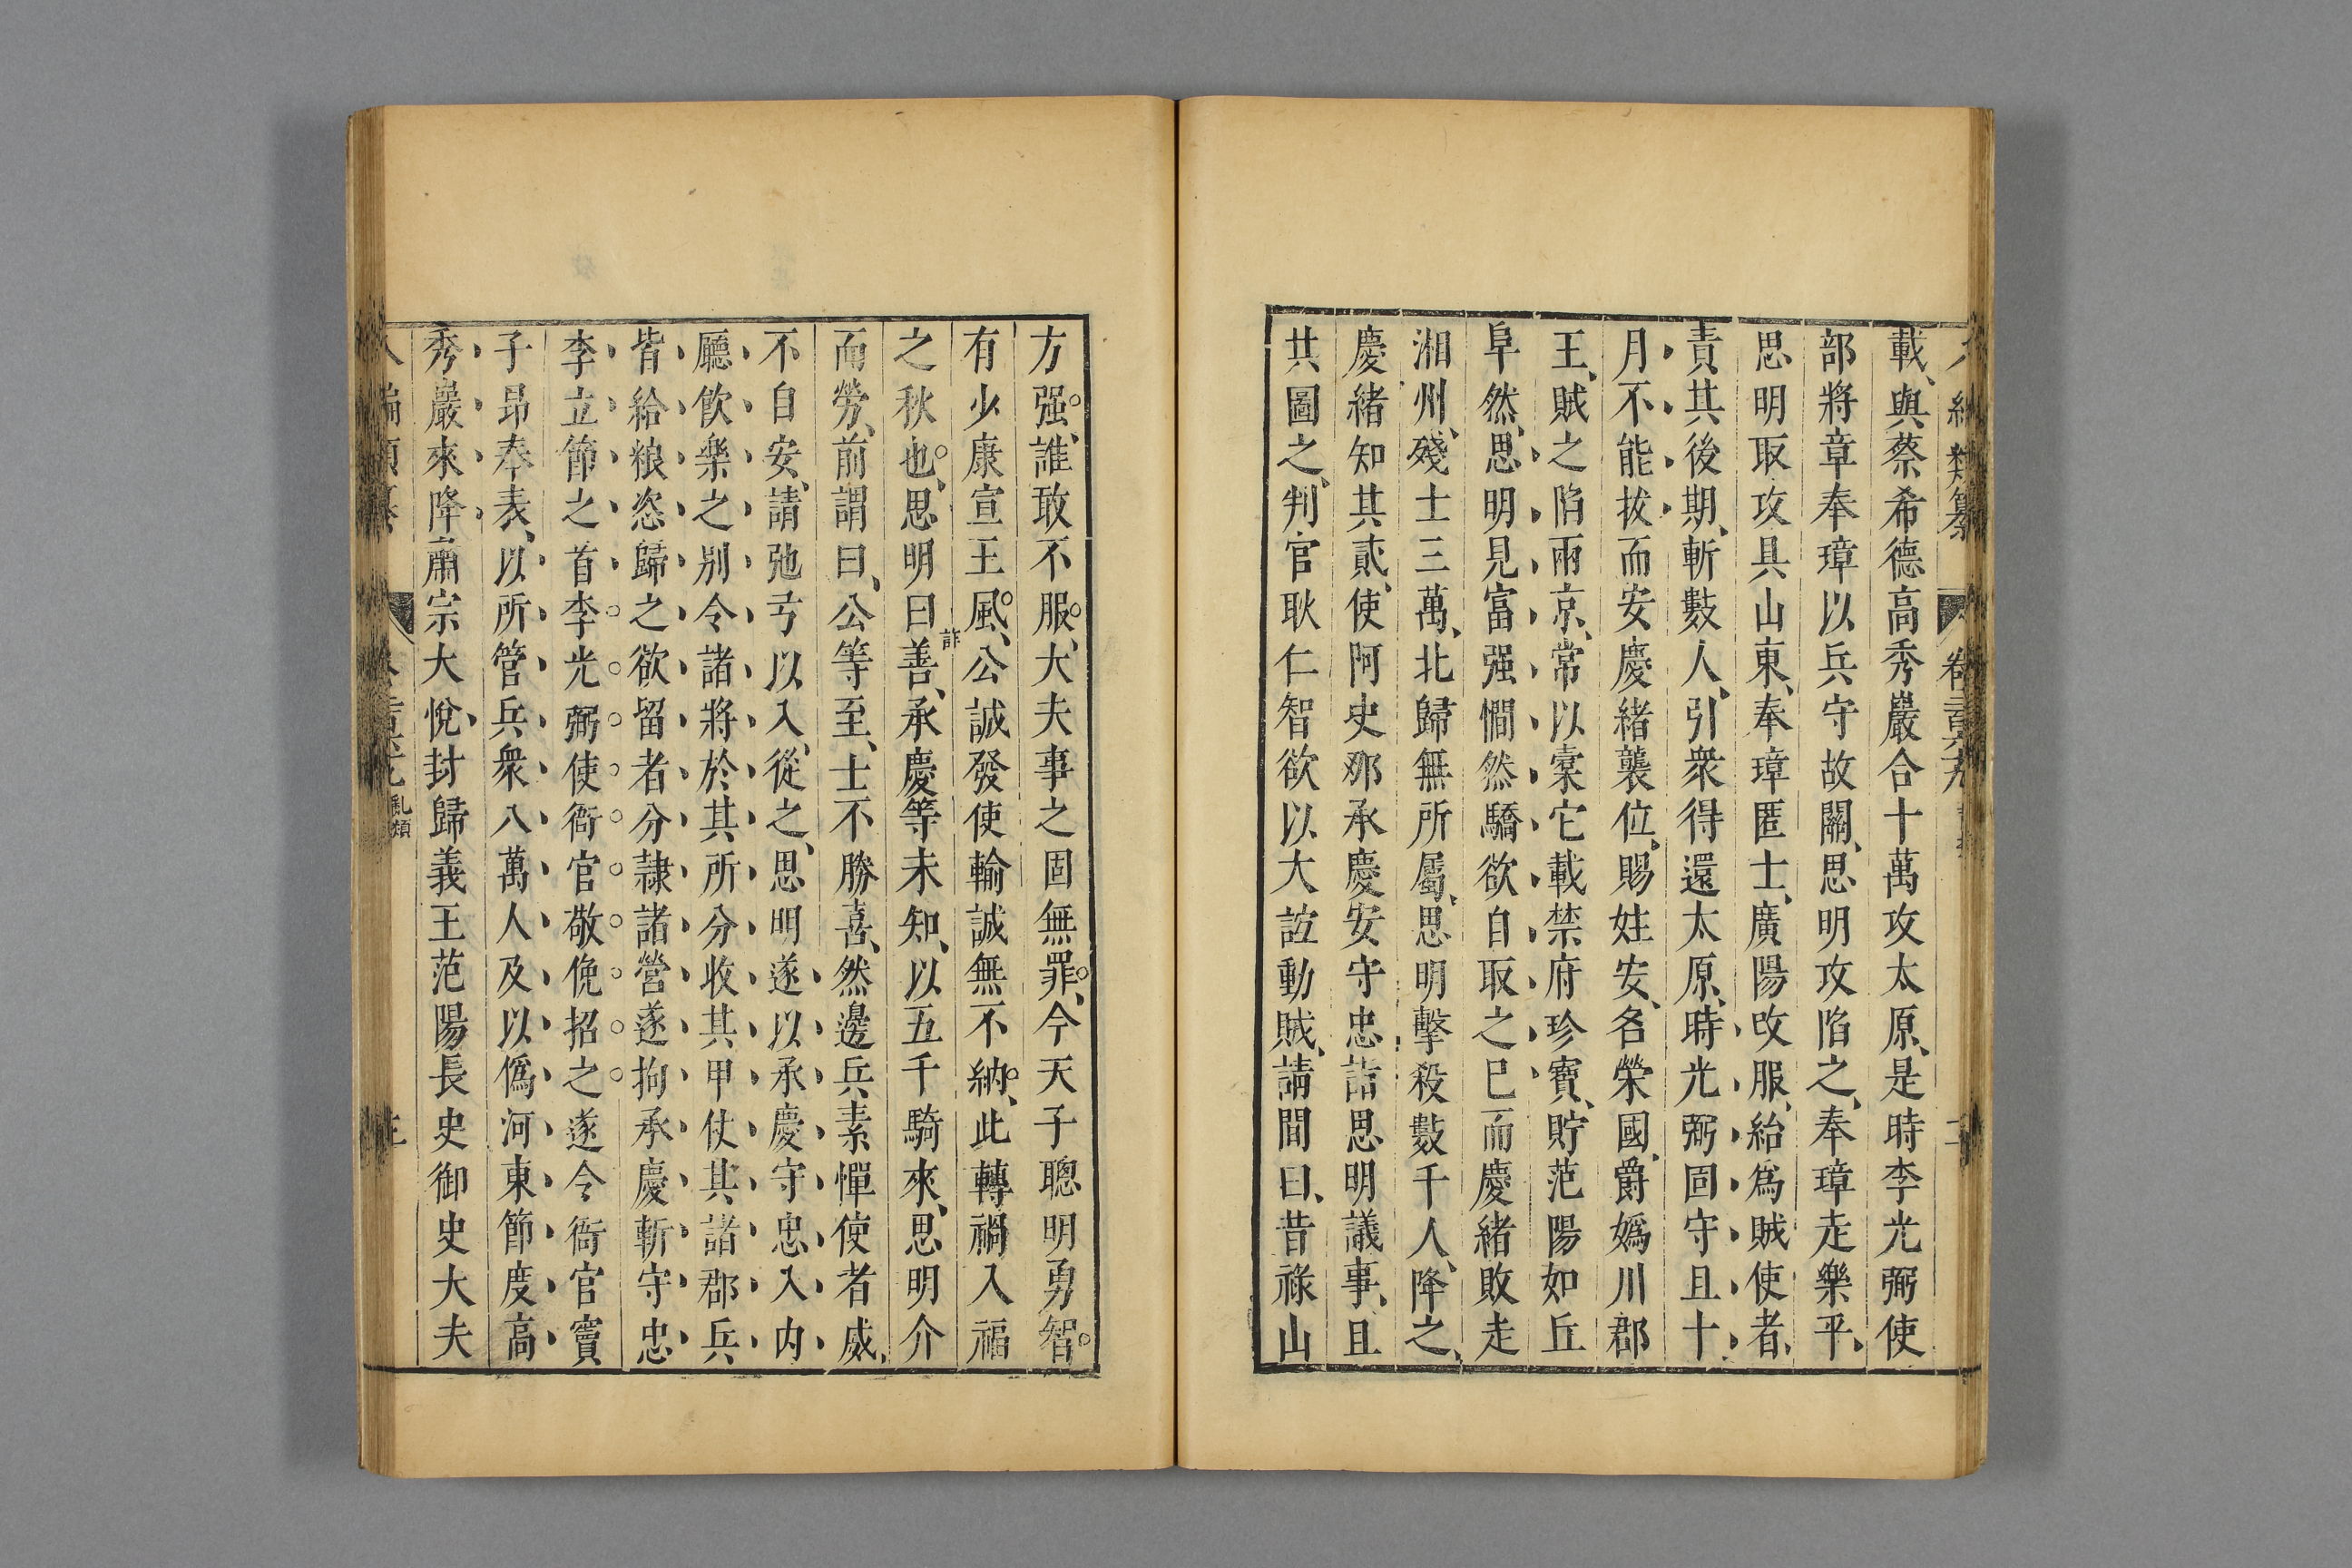 編類纂 卷二百六九
載、與蔡希德高秀巖合十萬攻太原、是時李光弼使
部將章奉璋以兵守故關、思明攻陷之、奉璋走樂平、
思明取攻具山東、奉璋匿士、廣陽改服、紿爲賊使者、
責其後期、斬數人、引衆得還太原、時光弼固守且十
月不能拔而安慶緒襲位、賜姓安、名榮國、爵嬀川郡
王、賊之陷兩京、常以橐它載禁府珍寶、貯范陽如丘
阜然、思明見富强憪然驕欲自取之已而慶緒敗走
湘州、殘士三萬、北歸無所屬、思明擊殺數千人、降之、
慶緒知其貳、使阿史那承慶安守忠詣思明議事、且
共圖之、判官耿仁智欲以大誼動賊、請間曰、昔祿山
方强、誰敢不服、大夫事之固無罪、今天子聰明勇智
有少康宣王風、公誠發使輸誠無不納、此轉禍入福
之秋也、思明曰善、承慶等未知、以五千騎來、思明介
詐
而勞、前謂曰、公等至、士不勝喜、然邊兵、素憚使者威、
不自安、請弛弓以入、從之、思明遂以承慶守忠入内
廳飲樂之別令諸將於其所分收其甲仗其諸郡兵
皆給粮恣歸之欲留者分隷諸營遂拘承慶斬守忠
李立節之首李光弼使衙官敬俛招之遂令衙官竇
子昂奉表、以所管兵衆八萬人及以僞河東節度高
秀巖來降肅宗大悅封歸義王范陽長史御史大夫
亂類